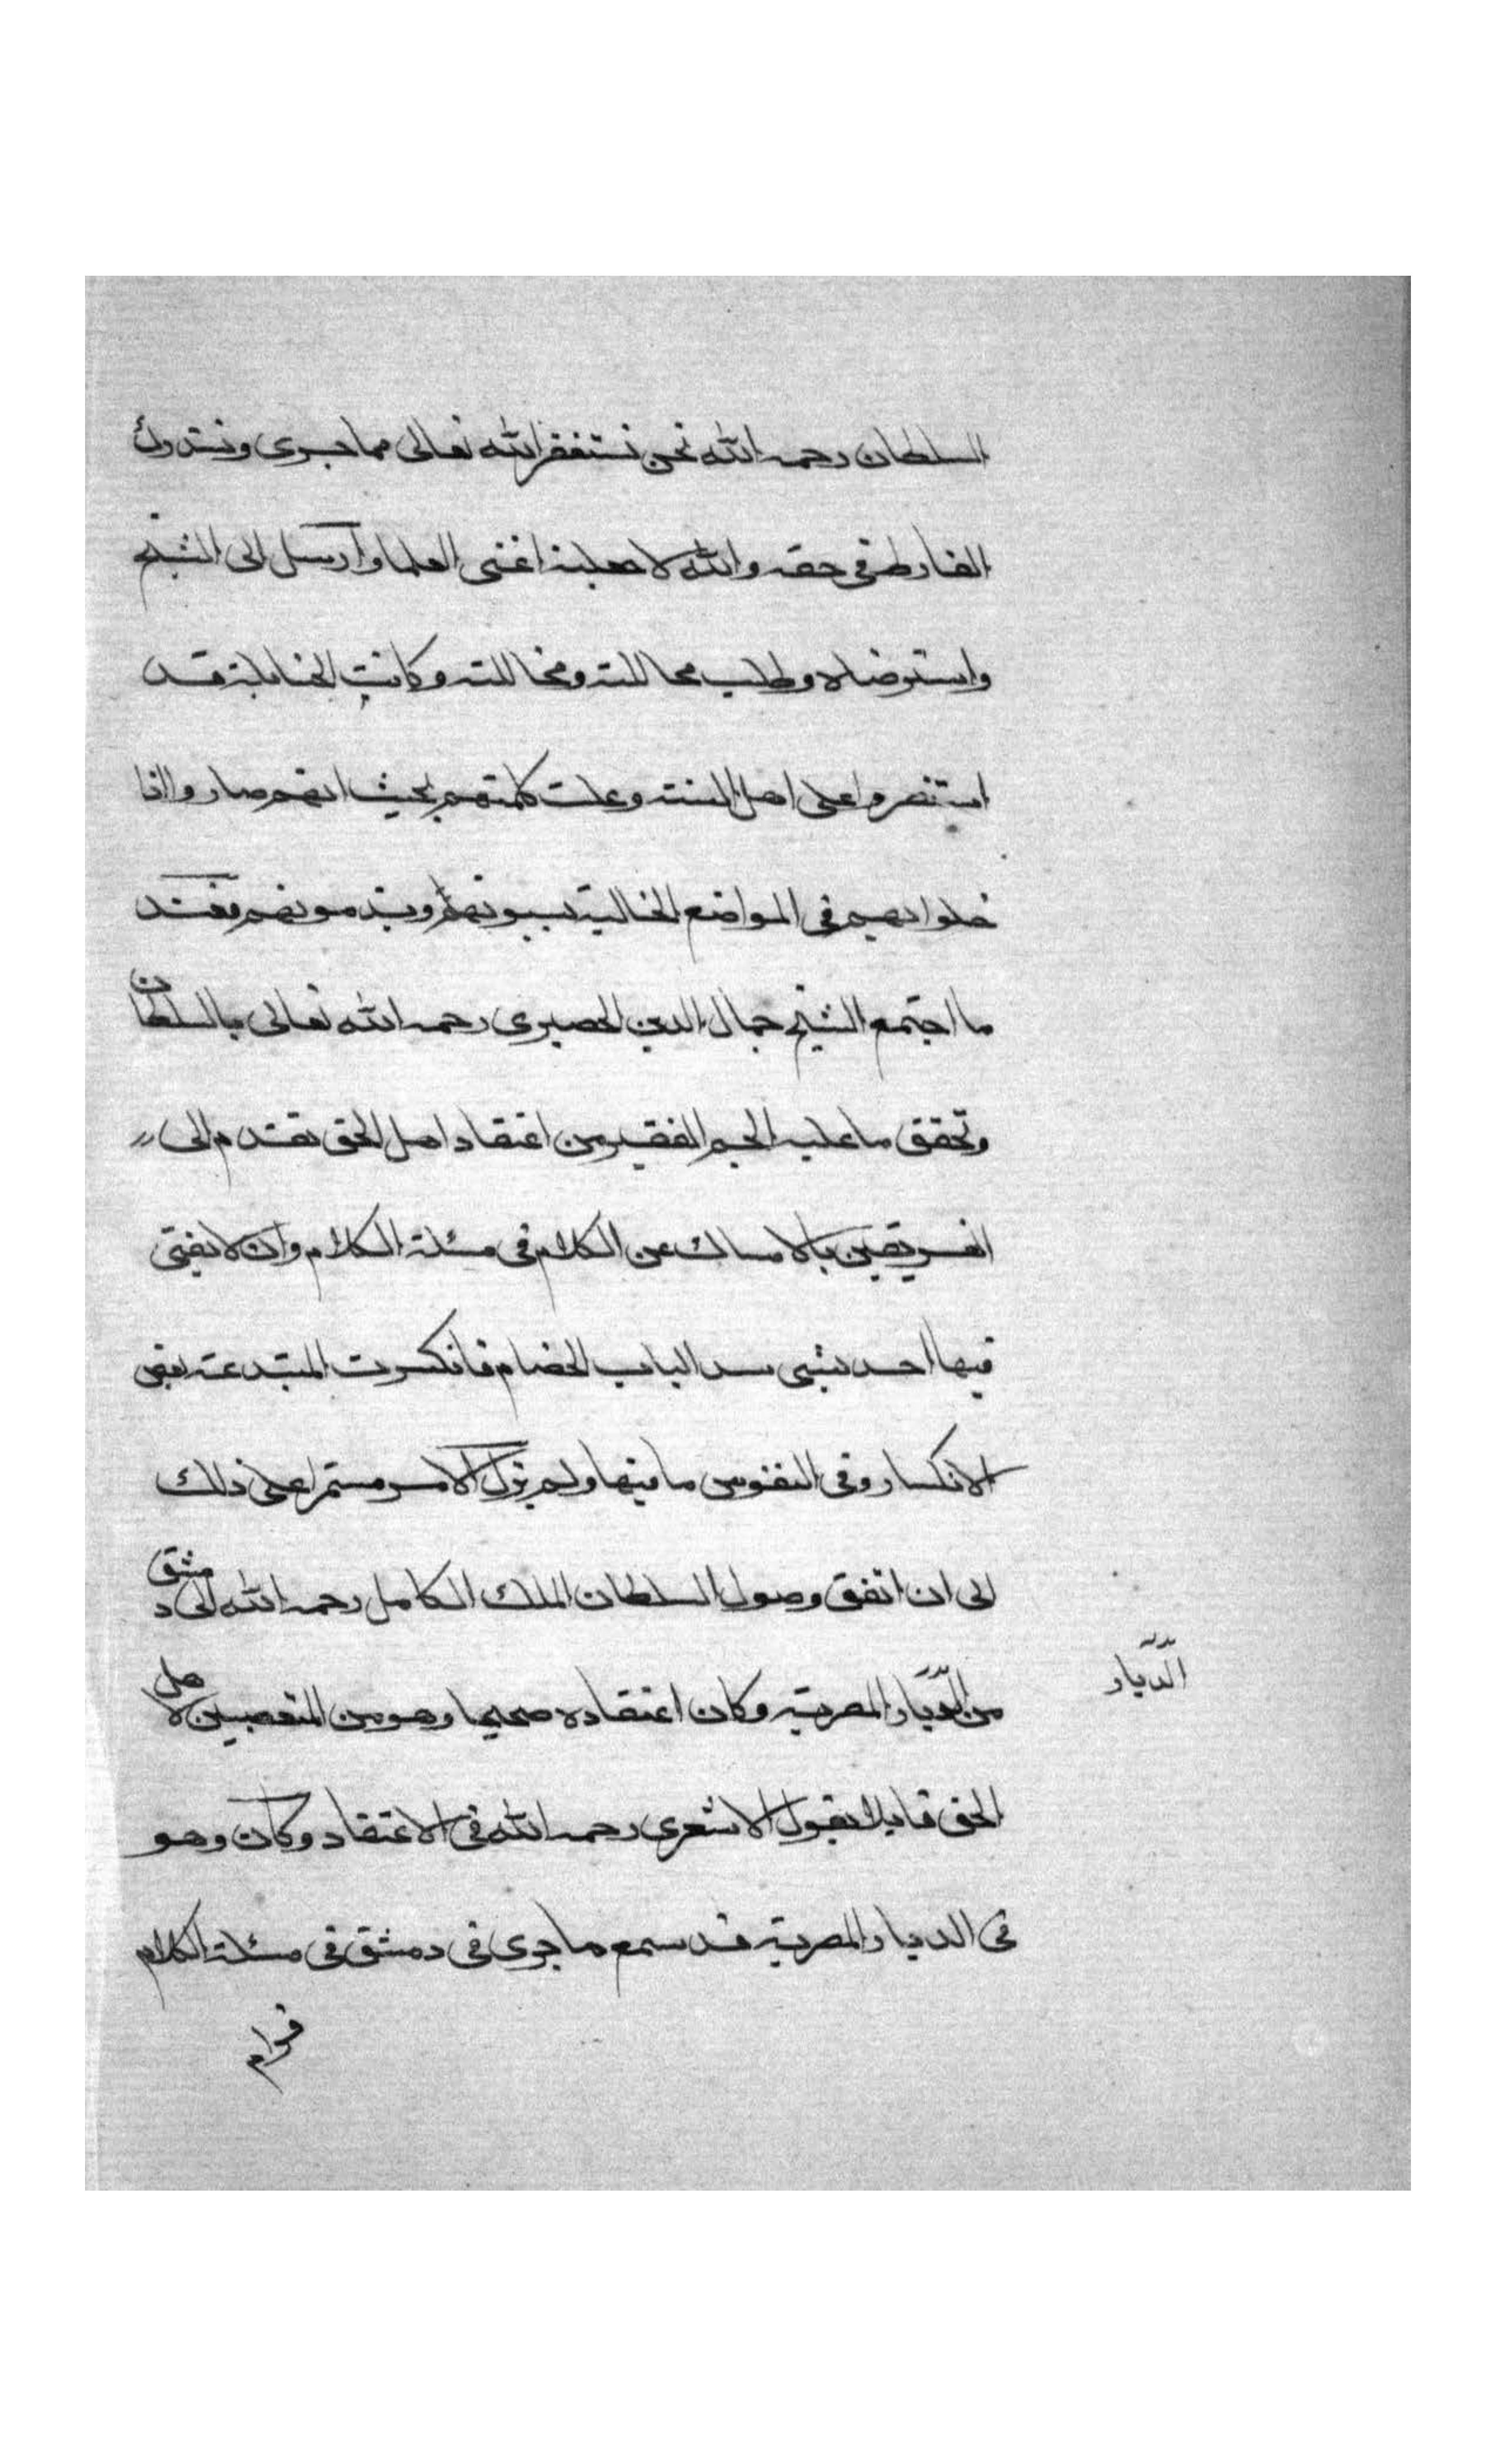 السلطان رحمه الله نحن نستغفر الله تعالى مما جرى ونستدرك
الفارط في حقه والله لاجعلنه اغنى العلما وارسل الى الشيخ
واسترضاه وطلب محاللته ومخاللته وكانت الحنابلة قد
استنصروا على اهل السنة وعلت كلمتهم بحيث انهم صاروا اذا
خلوا بهم في المواضع الخالية يسبونهم ويذمونهم فعند
ما اجتمع الشيخ جمال الدين الحصيري رحمه الله تعالى بالسلطان
وتحقق ما عليه الجم الغفير من اعتقاد اهل الحق تقدم الى
الفريقين بالامساك عن الكلام في مسئلة الكلام وان لا يفتي
فيها احد بشي سد الباب الخصام فانكسرت المبتدعة بعض
الانكسار وفي النفوس ما فيها ولم يزل الامر مستمرا على ذلك
الى ان اتفق وصول السلطان الملك الكامل رحمه الله الى دمشق
من الديار المصرية وكان اعتقاده صحيحا وهو من المتعصبين لاهل
الديار
الحق قايلا بقول الاشعري رحمه الله في الاعتقاد وكان وهو
في الديار المصرية قد سمع ما جرى في دمشق في مسئلة الكلام
فرام